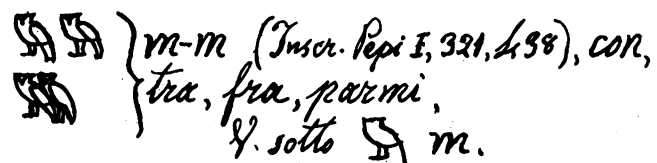 𓅓𓅓 } m-m (Inscr. Pepi I, 321, 438), con,
𓅔 } tra, fra, parmi,
V. sotto 𓅓 m.